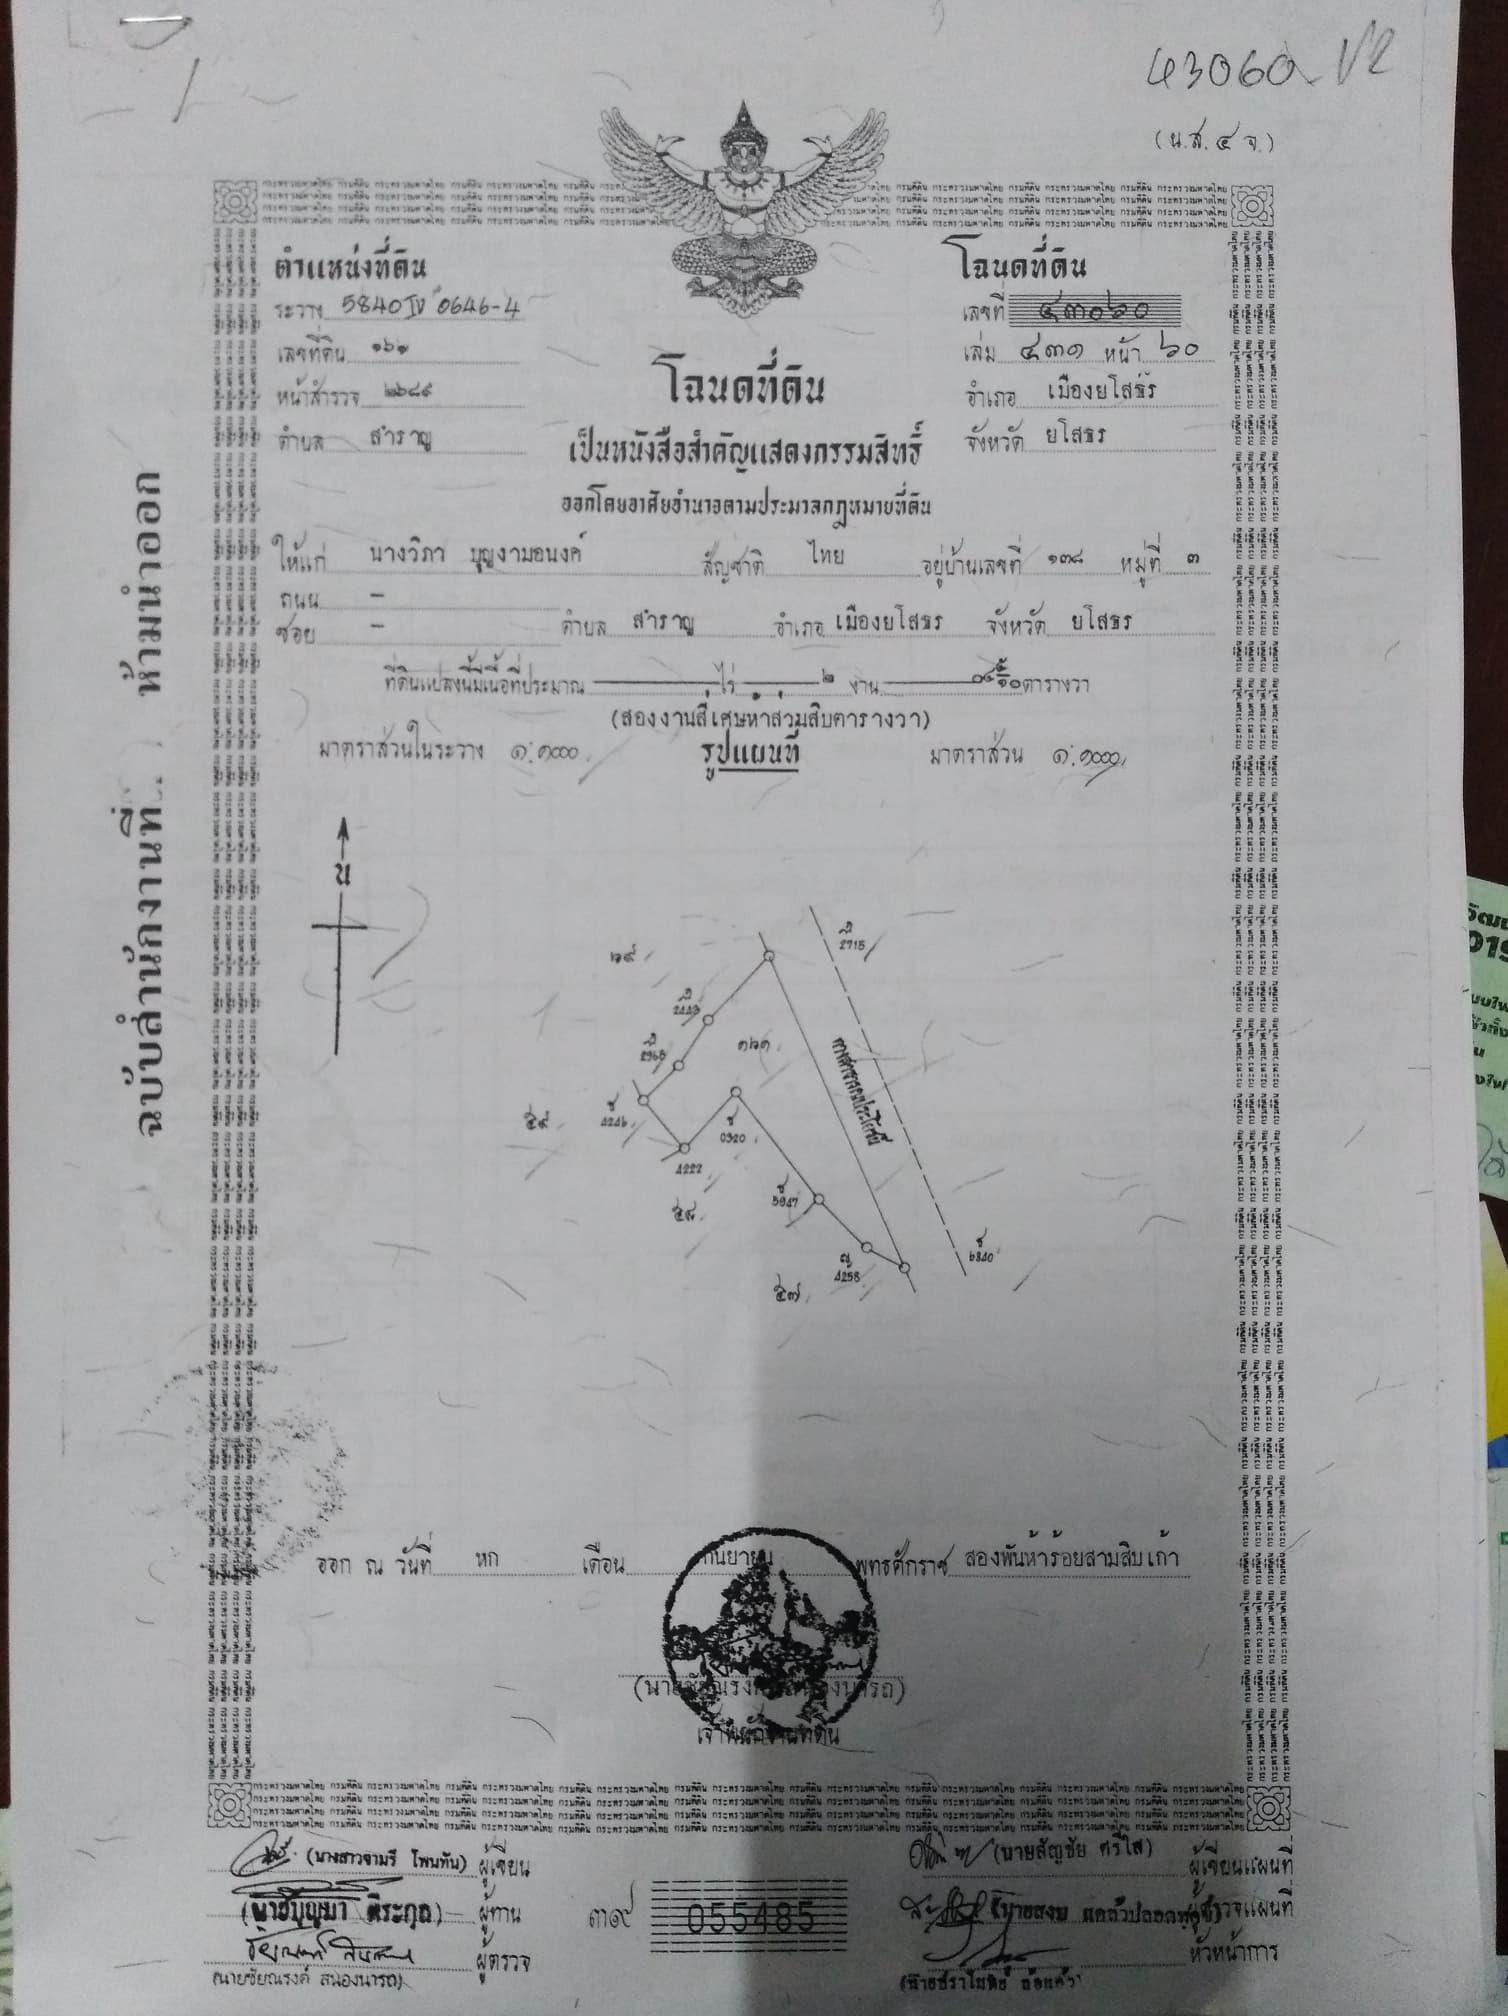 43060
(น.ส. ๔ จ.)
ตำแหน่งที่ดิน
โฉนดที่ดิน
ระวาง 5840 IV 0646-4
เลขที่ ๔๓๐๖๐
เลขที่ดิน ๑๖๑
เล่ม ๔๓๑ หน้า ๖๐
หน้าสำรวจ ๒๖๘๙
อำเภอ เมืองยโสธร
ตำบล สำราญ
จังหวัด ยโสธร
โฉนดที่ดิน
เป็นหนังสือสำคัญแสดงกรรมสิทธิ์
ออกโดยอาศัยอำนาจตามประมวลกฎหมายที่ดิน
ให้แก่ นางวิภา บุญงามอนงค์ สัญชาติ ไทย อยู่บ้านเลขที่ ๑๓๘ หมู่ที่ ๓
ถนน –
ซอย – ตำบล สำราญ อำเภอ เมืองยโสธร จังหวัด ยโสธร
ที่ดินแปลงนี้มีเนื้อที่ประมาณ ไร่ ๒ งาน ตารางวา
(สองงานสี่เศษห้าส่วนสิบตารางวา)
มาตราส่วนในระวาง ๑:๑๐๐๐
รูปแผนที่
มาตราส่วน ๑:๑๐๐๐
น
๑๖๑
ทางสาธารณประโยชน์
2715
4222
0320
5947
4258
๕๙
๕๘
๕๗
ฉบับสำนักงานที่ ห้ามนำออก
ออก ณ วันที่ หก เดือน กันยายน พุทธศักราช สองพันห้าร้อยสามสิบเก้า
เจ้าพนักงานที่ดิน
(นางสาวจามรี โพนทัน) ผู้เขียน
(นายสัญชัย ศรีใส) ผู้เขียนแผนที่
ผู้ทาน
๓๙
055485
ผู้ตรวจแผนที่
ผู้ตรวจ
หัวหน้าการ
(นายชัยณรงค์ สนองนารถ)